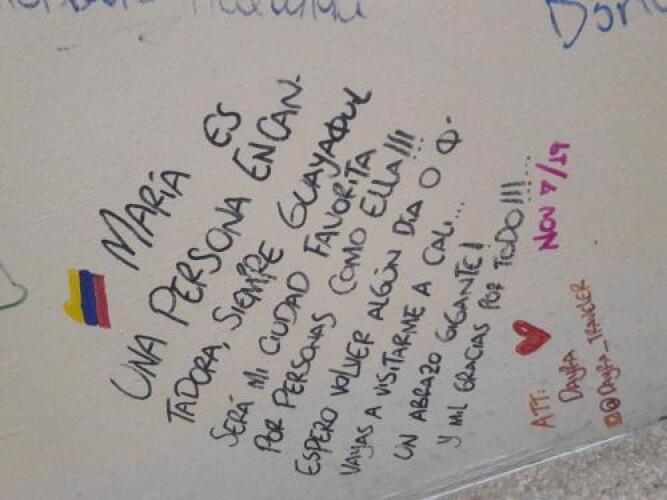 MARÍA ES
UNA PERSONA ENCAN-
TADORA, SIEMPRE GUAYAQUIL
SERÁ MI CIUDAD FAVORITA
POR PERSONAS COMO ELLA!!!
ESPERO VOLVER ALGÚN DÍA O Q.
VAYAS A VISITARME A CALI....
UN ABRAZO GIGANTE!
Y MIL GRACIAS POR TODO!!!....
NOV 7/19
ATT:
DAYRA
@DAYRA_TRAVELER